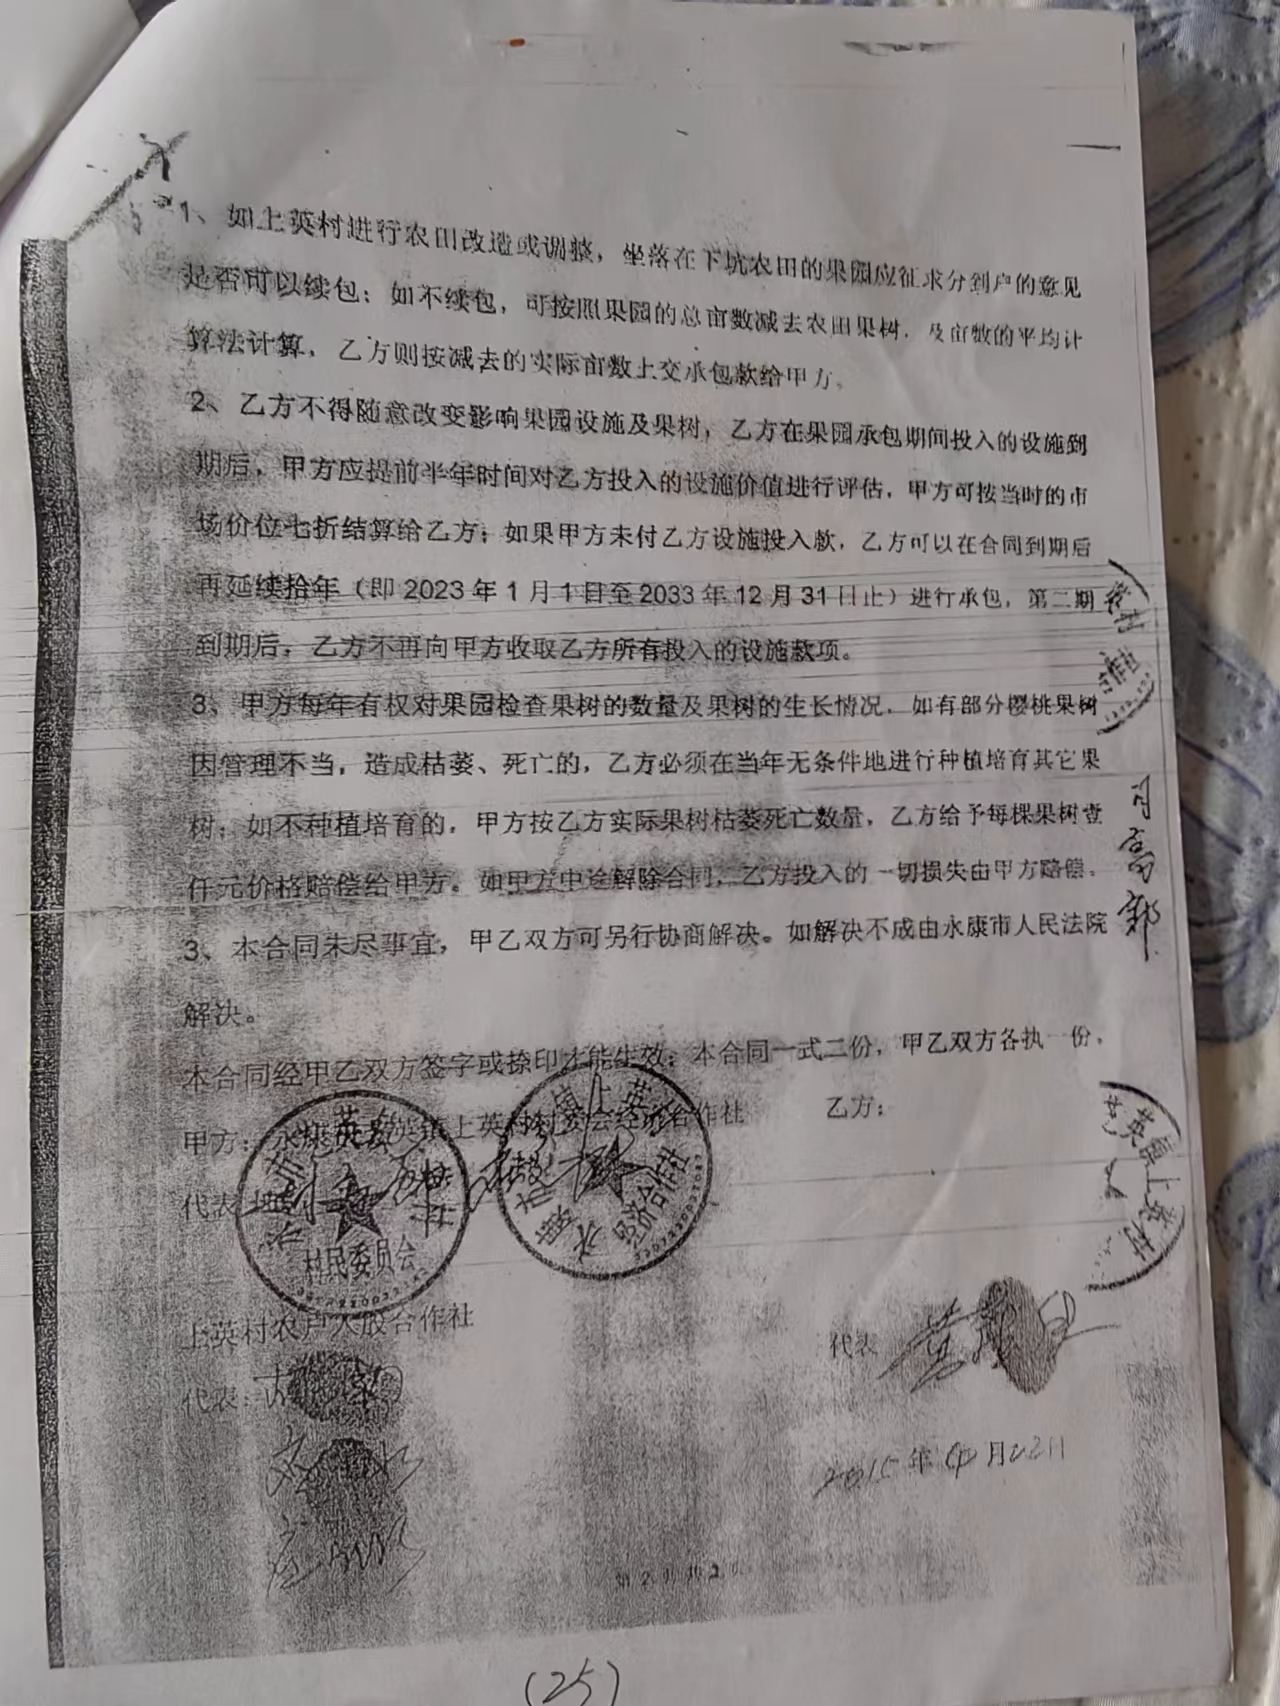 1、如上英村进行农田改造或调整，坐落在下坑农田的果园应征求分到户的意见
是否可以续包；如不续包，可按照果园的总亩数减去农田果树．及亩数的平均计
算法计算，乙方则按减去的实际亩数上交承包款给甲方。
2、乙方不得随意改变影响果园设施及果树，乙方在果园承包期间投入的设施到
期后，甲方应提前半年时间对乙方投入的设施价值进行评估，甲方可按当时的市
场价位七折结算给乙方；如果甲方未付乙方设施投入款，乙方可以在合同到期后
再延续拾年（即2023年1月1日至2033年12月31日止）进行承包，第二期
到期后，乙方不再向甲方收取乙方所有投入的设施款项。
3、甲方每年有权对果园检查果树的数量及果树的生长情况，如有部分樱桃果树
因管理不当，造成枯萎、死亡的，乙方必须在当年无条件地进行种植培育其它果
树；如不种植培育的，甲方按乙方实际果树枯萎死亡数量，乙方给予每棵果树壹
仟元价格赔偿给甲方。如甲方中途解除合同，乙方投入的一切损失由甲方赔偿。
3、本合同未尽事宜，甲乙双方可另行协商解决。如解决不成由永康市人民法院
解决。
本合同经甲乙双方签字或捺印才能生效；本合同一式二份，甲乙双方各执一份。
甲方：永康 上英村村委会经济合作社 乙方：
代表
村民委员会
经济合作社
英镇上英村
上英村农户入股合作社
代表
代表：
2015年 月22日
第2页共2页
(25)